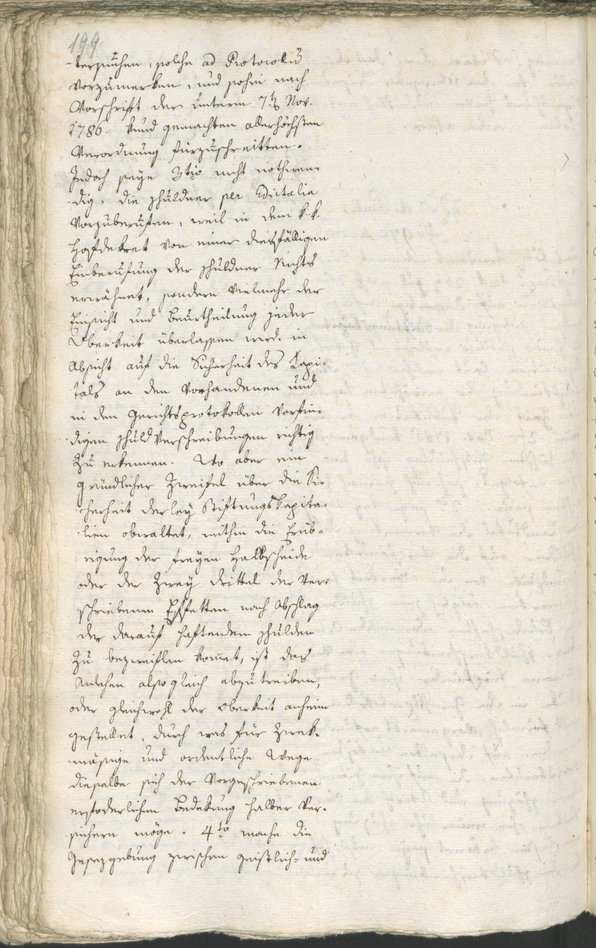 199
-tersuchen, solche ad Protocolū
vorzumerken, und sohin nach
Vorschrift der unterm 7t Nov.
1786. kund gemachten allerhöchsten
Verordnung fürzuschreitten.
Jedoch seÿe 3tio nicht nothwen-
dig, die schuldner per Edictalia
vorzuberufen, weil in dem k: k:
Hofdekret von einer diesfälligen
Einberufung der schuldner Nichts
erwähnet, sondern vielmehr der
Einsicht und Beurtheilung jeder
Oberkeit überlassen werde in
Absicht auf die Sicherheit des Kapi-
tals an den vorhandenen und
in den Gerichtsprotokollen vorfin-
digen schuldverschreibungen richtig
zu erkennen. Wo aber ein
gründlicher Zweifel über die Si-
cherheit derleÿ Stiftungskapita-
lien obwaltet, mithin die Erüb-
rigung der freÿen Halbscheide
oder der Zweÿ drittel der ver-
schriebenen Effetten nach Abschlag
der darauf haftenden schulden
zu bezweiflen kom̄et, ist das
Anlehen alsogleich abzutreiben,
oder gleichwohl der Oberkeit anheim
gestellet, durch was für Zwek-
mäsige und ordentliche Wege
dieselbe sich der vorgeschriebenen
erfoderlichen Bedekung halber ver-
sichern möge. 4to mache die
Gesezgebung zwischen geistlich- und